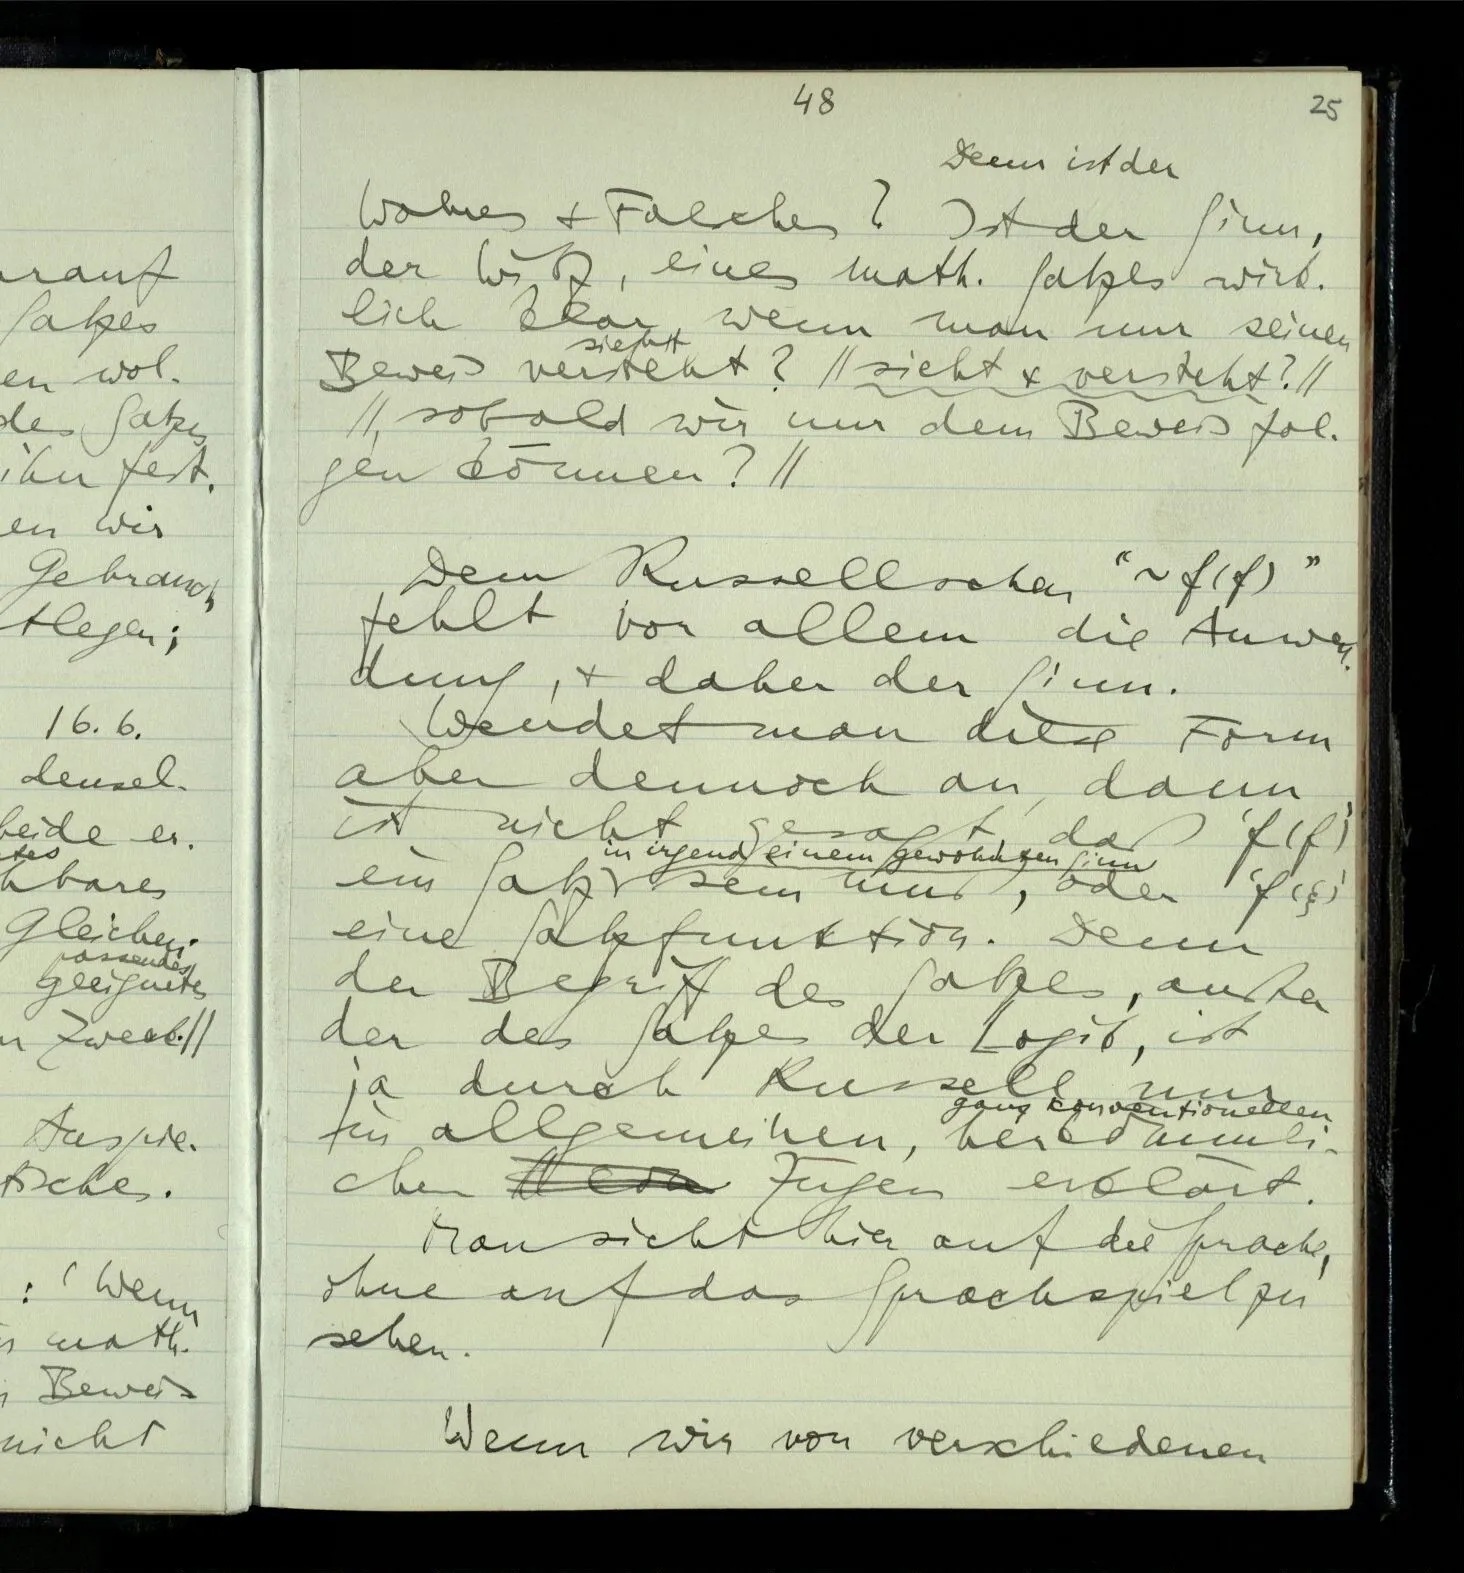 arauf
Satzes
en wol-
des Satzes
ihn fest.
en wir
Gebrauch
tlegen;
16.6.
densel-
beide er-
hbares
Gleichen.
passendes
geeignetes
Zweck.//
Auspie-
tische.
: 'Wenn
math.
Beweis
nicht
48
25
Denn ist der
Wahres & Falsches? Ist der Sinn,
der Witz, eines math. Satzes wirk-
lich klar, wenn man nur seinen
sieht
Beweis versteht? // sieht & versteht? //
//, sobald wir nur dem Beweis fol-
gen können? //
Dem Russellschen “~f(f)”
fehlt vor allem die Anwen-
dung, & daher der Sinn.
Wendet man diese Form
aber dennoch an, dann
ist nicht gesagt, daß ‘f(f)’
in irgend einem gewohnten Sinn
ein Satz sein muß, oder ‘f(ξ)’
eine Satzfunktion. Denn
der Begriff des Satzes, außer
der des Satzes der Logik, ist
ja durch Russell nur
ganz konventionellen
in allgemeinen, herkömmli-
chen Zügen erklärt.
Man sieht hier auf die Sprache,
ohne auf das Sprachspiel zu
sehen.
Wenn wir von verschiedenen